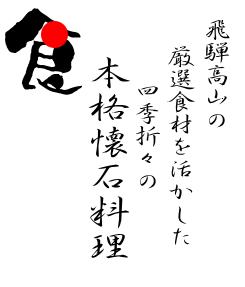 飛騨高山の
厳選食材を活かした
四季折々の
本格懐石料理
食